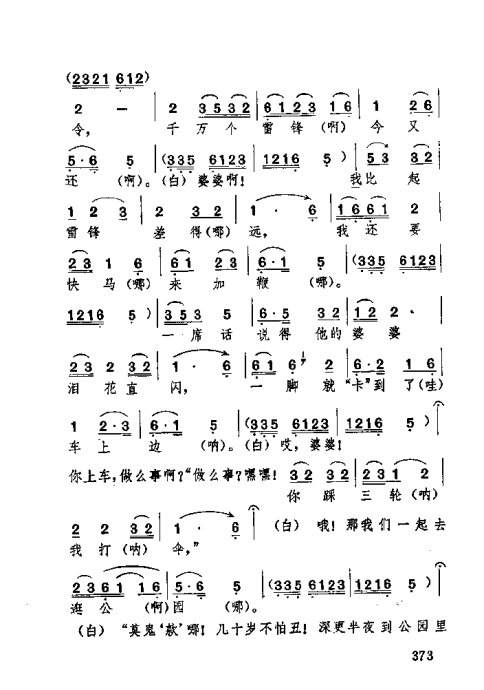 (2321 612)
2 — | 2 3532 | 6123 16 | 1 26 |
令， 千万个 雷锋（啊）今又
5·6 5 | (335 6123 | 1216 5 ) | 53 32 |
还（啊）。（白）婆婆啊！ 我比起
1 2 3 | 2 32 | 1· 6 | 1661 2 |
雷锋 差得（哪）远， 我还要
23 1 6 | 61 23 | 6·1 5 | (335 6123 |
快马（哪）来加鞭（哪）。
1216 5 ) | 353 5 | 6·5 32 | 12 2· |
一席话 说得他的婆婆
23 2 32 | 1· 6 | 61 6 2 | 6·2 16 |
泪花直闪， 一脚就“卡”到了（哇）
1 2·3 | 6·1 5 | (335 6123 | 1216 5 ) |
车上边（呐）。（白）哎，婆婆！
你上车，做么事啊？“做么事？嘿嘿！ 32 32 | 231 2 |
你踩三轮（呐）
2 2 32 | 1· 6 | （白）哦！那我们一起去
我打（呐）伞，”
2361 16 | 5·6 5 | (335 6123 | 1216 5 ) |
逛公（啊）园（哪）。
（白）“莫鬼‘款’哪！几十岁不怕丑！深更半夜到公园里
373